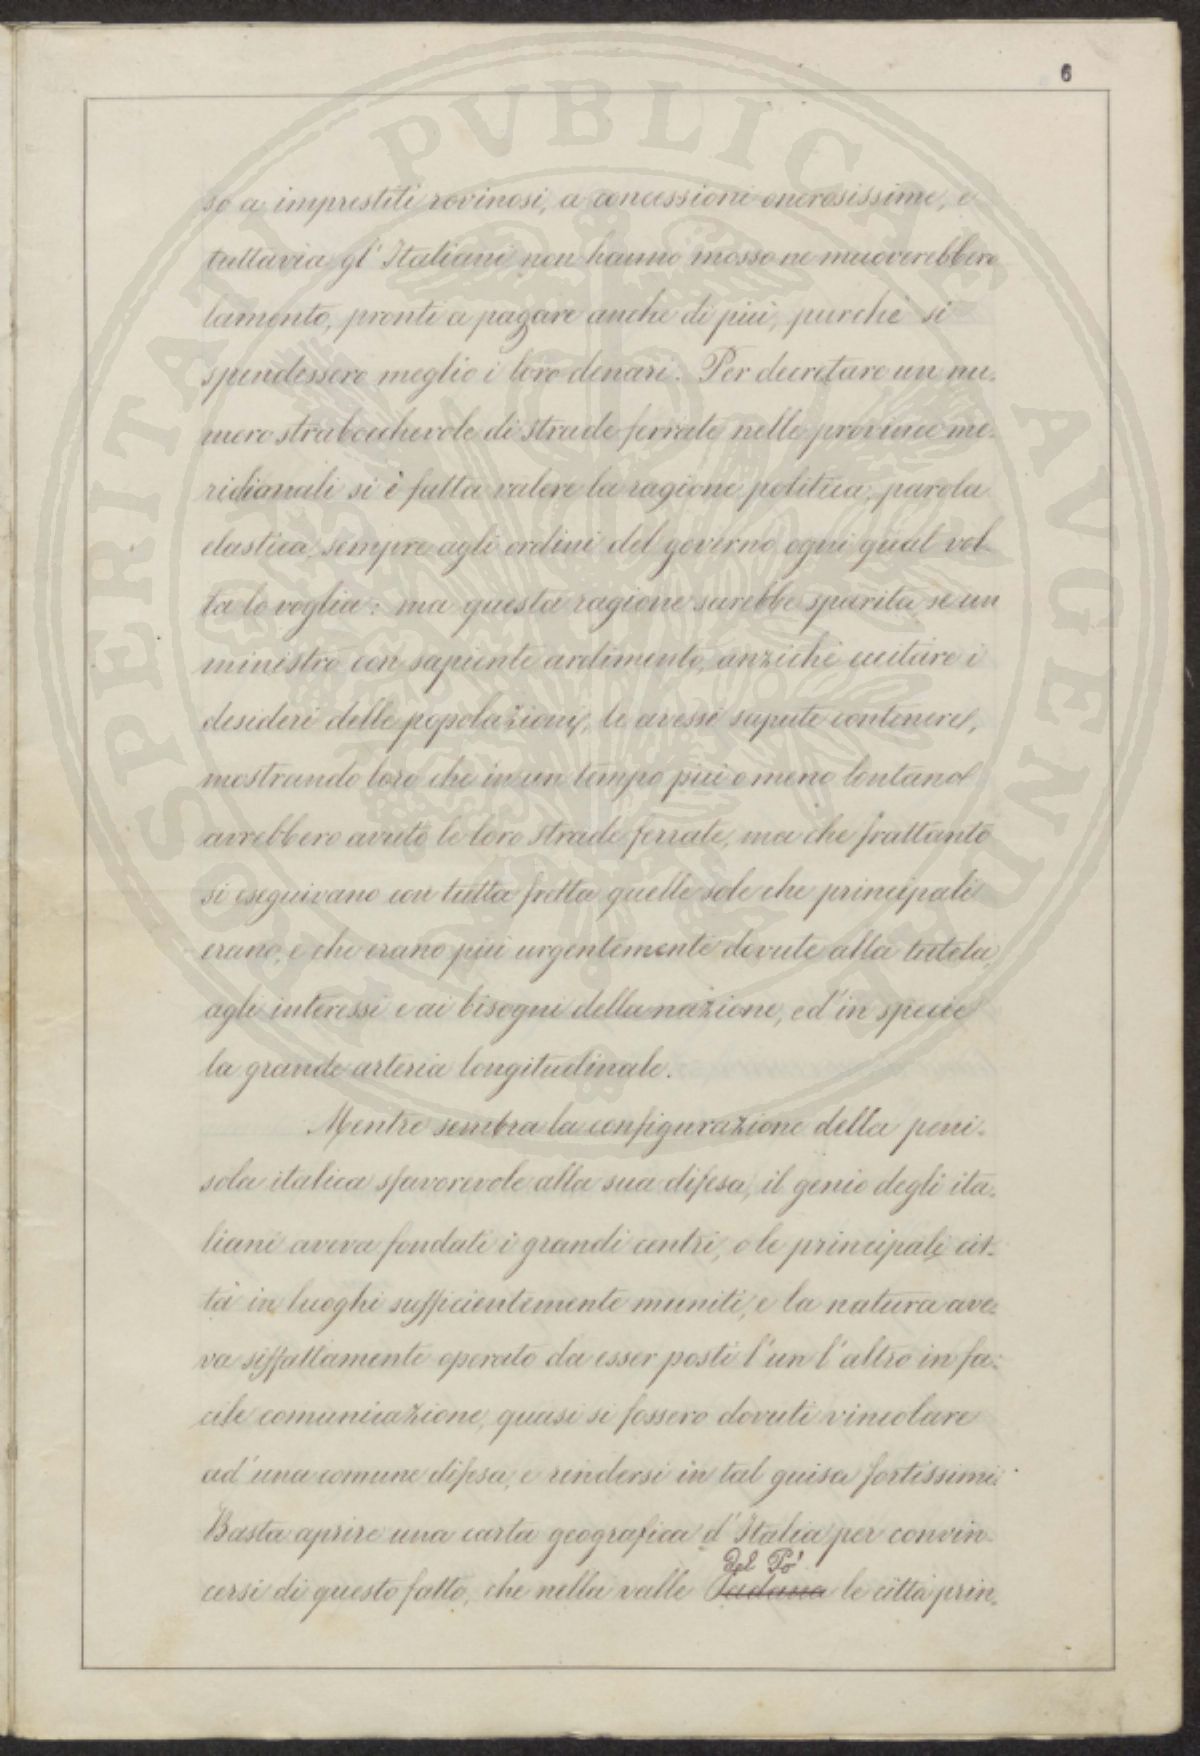 6
so a imprestiti rovinosi, a concessioni onerosissime, e
tuttavia gl'Italiani non hanno mosso ne muoverebbero
lamento, pronti a pagare anche di più, purchè si
spendessero meglio i loro denari. Per decretare un nu-
mero strabocchevole di strade ferrate nelle provincie me-
ridionali si è fatta valere la ragione politica, parola
elastica, sempre agli ordini del governo ogni qual vol-
ta lo voglia: ma questa ragione sarebbe sparita se un
ministro con sapiente ardimento, anzichè eccitare i
desideri delle popolazioni, le avesse sapute contenere,
mostrando loro che in un tempo più o meno lontano
avrebbero avuto le loro strade ferrate, ma che frattanto
si eseguivano con tutta fretta quelle sole che principali
erano, e che erano più urgentemente dovute alla tutela,
agli interessi e ai bisogni della nazione, ed'in specie
la grande arteria longitudinale.
Mentre sembra la configurazione della peni-
sola italica sfavorevole alla sua difesa, il genio degli ita-
liani aveva fondati i grandi centri, o le principali cit-
tà in luoghi sufficientemente muniti, e la natura ave-
va siffattamente operato da esser posti l'un l'altro in fa-
cile comunicazione, quasi si fossero dovuti vincolare
ad'una comune difesa, e rendersi in tal guisa fortissimi.
Basta aprire una carta geografica d'Italia per convin-
del Po'
cersi di questo fatto, che nella valle Padana le città prin-
SOSPERITATI PVBLICAE AVGENDAE